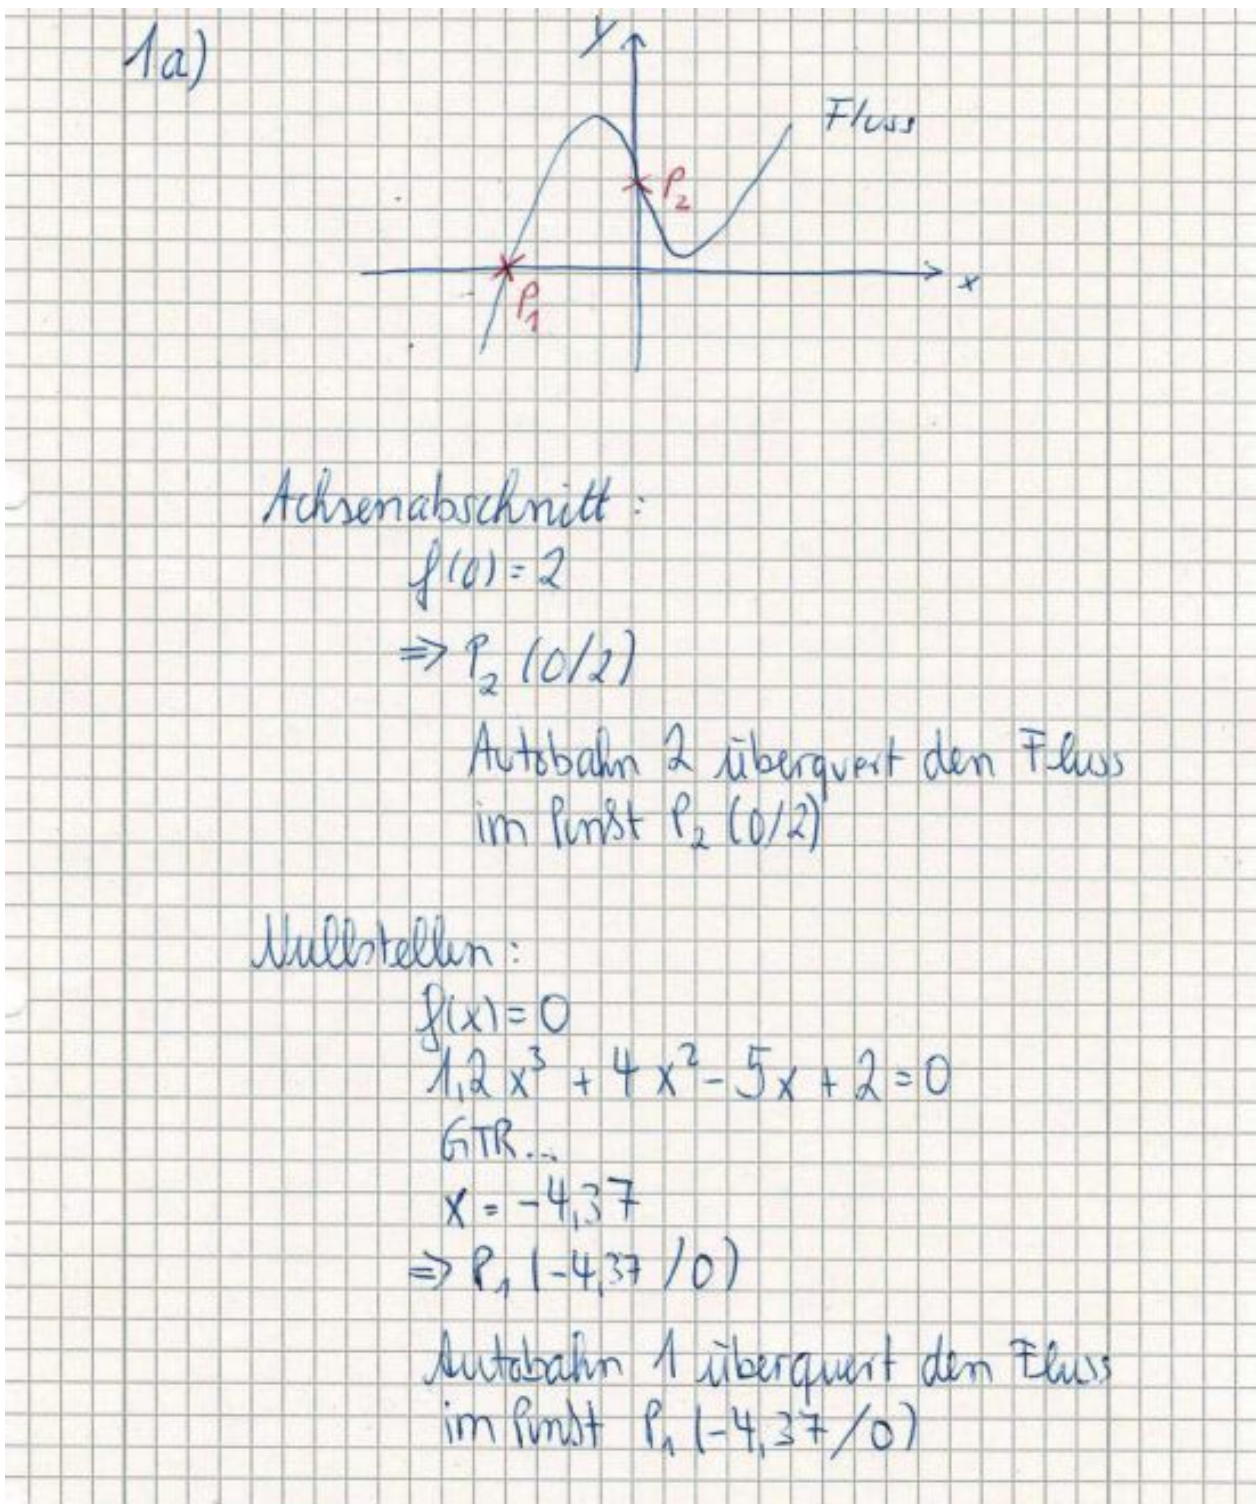 1a)
y
Fluss
P₂
x
P₁
Achsenabschnitt:
f(0) = 2
⇒ P₂ (0/2)
Autobahn 2 überquert den Fluss
im Punkt P₂ (0/2)
Nullstellen:
f(x) = 0
1,2 x³ + 4 x² - 5x + 2 = 0
GTR...
x = -4,37
⇒ P₁ (-4,37 / 0)
Autobahn 1 überquert den Fluss
im Punkt P₁ (-4,37/0)